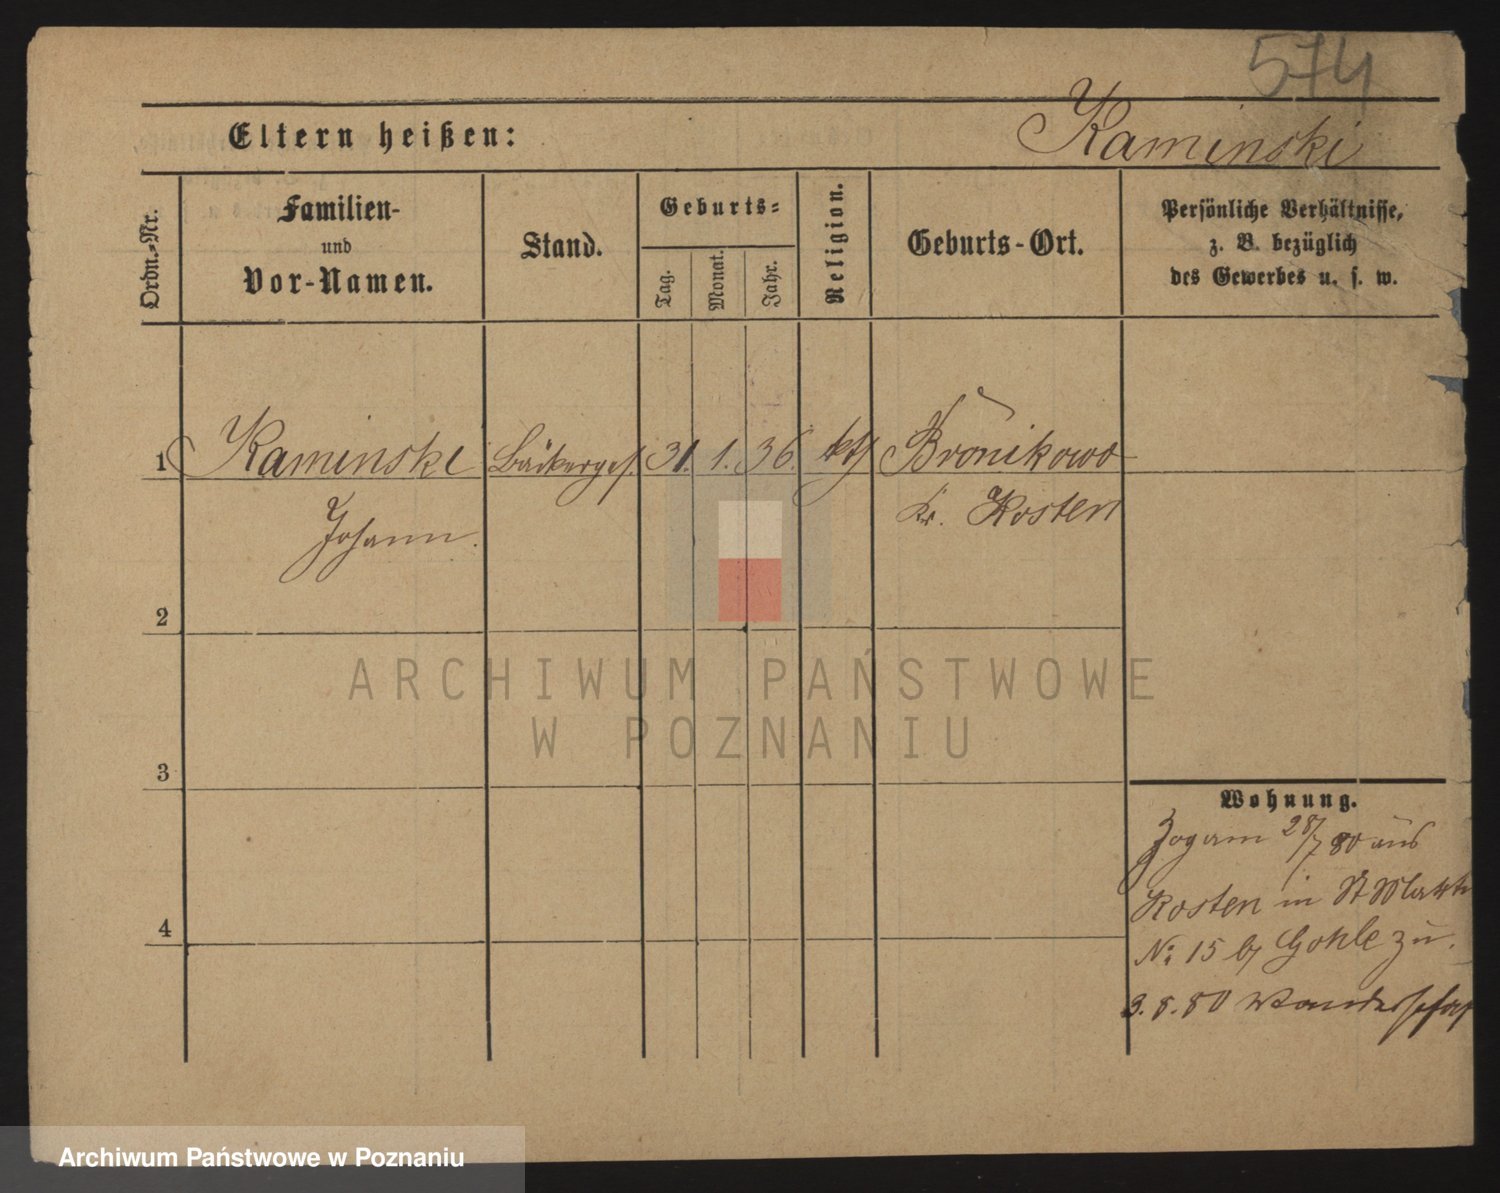 574
Kaminski
Eltern heißen:
Ordn.-Nr.
Familien-
und
Vor-Namen.
Stand.
Geburts-
Tag.
Monat.
Jahr.
Religion.
Geburts-Ort.
Persönliche Verhältnisse,
z. B. bezüglich
des Gewerbes u. s. w.
1 Kaminski Bäckerges. 31. 1. 36. kth Bronikowo
Johann. Kr. Kosten
2
3
4
Wohnung.
Zog am 28/7 80 aus
Kosten in St
No 15 b/ Gohle zu.
3. 8. 80 Wanderschaft
ARCHIWUM PAŃSTWOWE
W POZNANIU
Archiwum Państwowe w Poznaniu